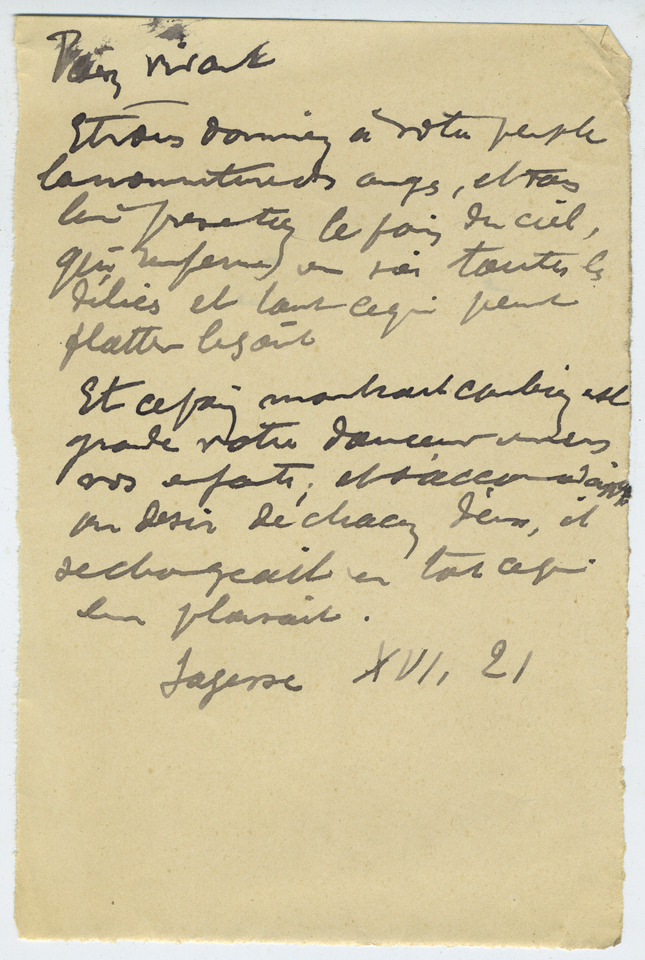 Pain vivant
Et vous donniez à votre peuple
la nourriture des anges, et vous
leur présentiez le pain du ciel,
qui renfermait en soi toutes les
délices et tout ce qui peut
flatter le goût
Et ce pain montrait combien est
grande votre douceur envers
vos enfants ; et s'accommodait
au désir de chacun d'eux, il
se changeait en tout ce qui
leur plaisait.
Sagesse XVI, 21